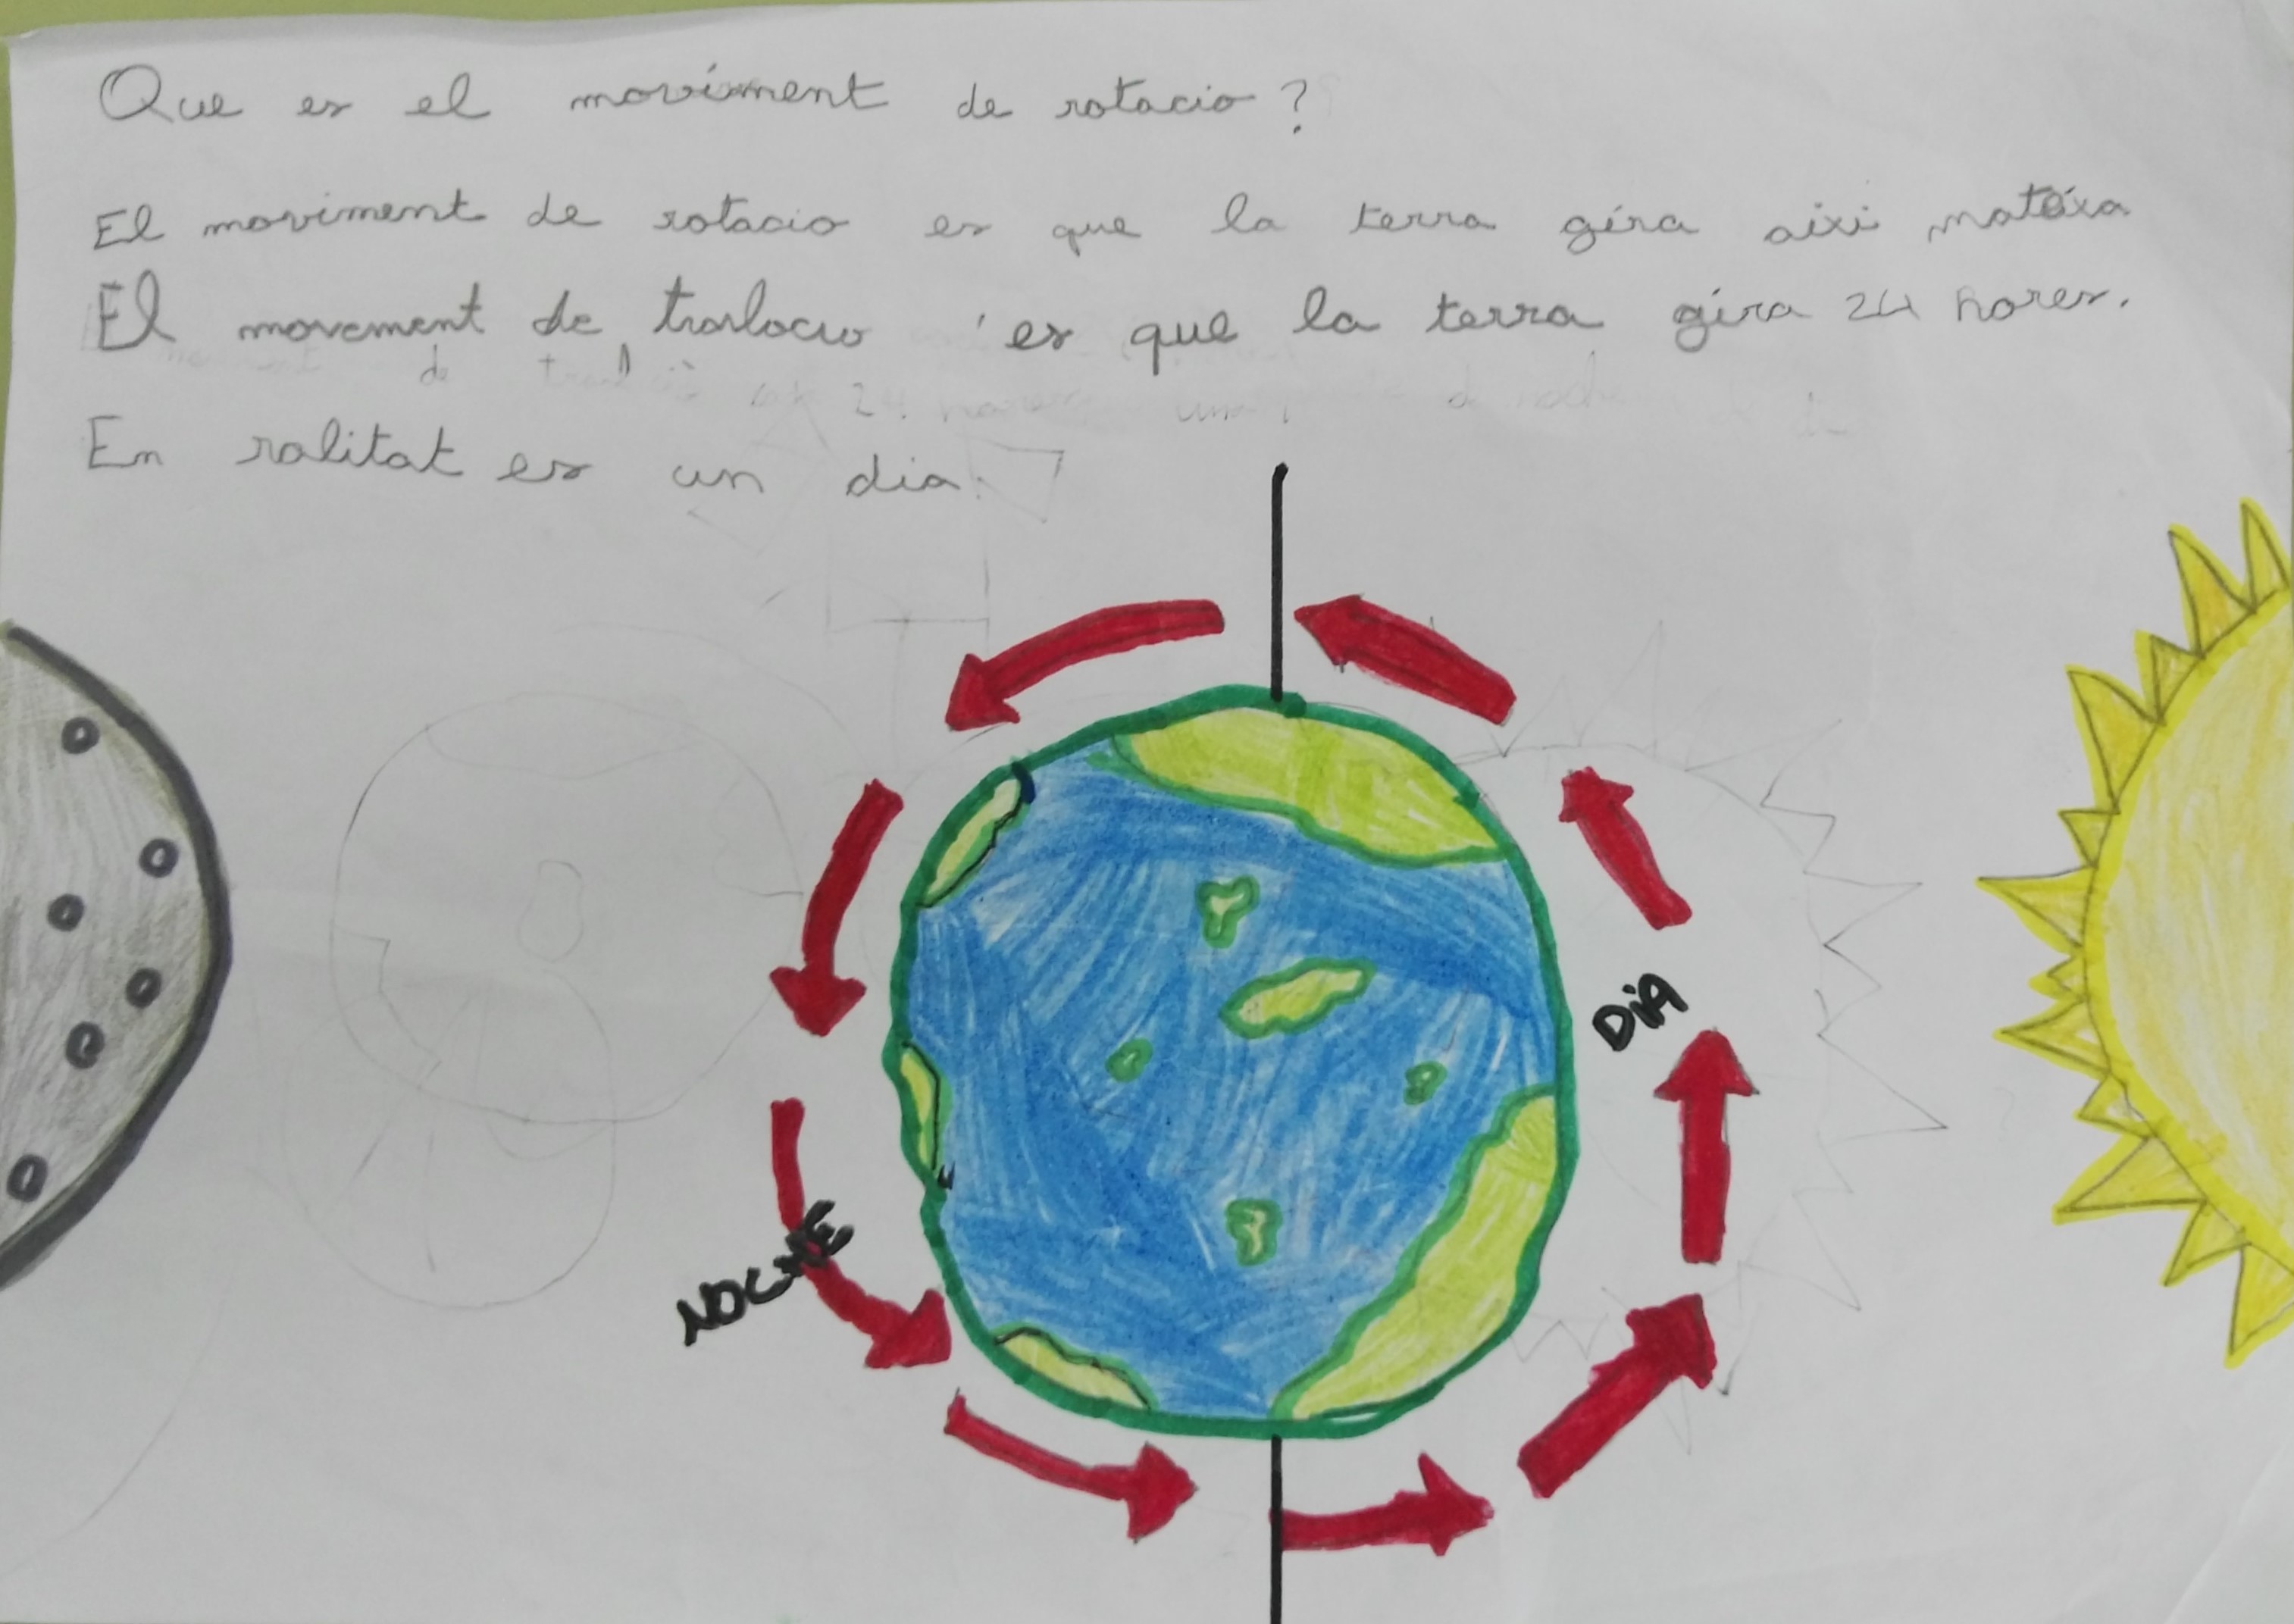 Que es el moviment de rotacio?
El moviment de rotacio es que la terra gira aixi mateixa
El movement de traslacio es que la terra gira 24 hores.
de 24 hores
En ralitat es un dia.
DiA
NOCHE